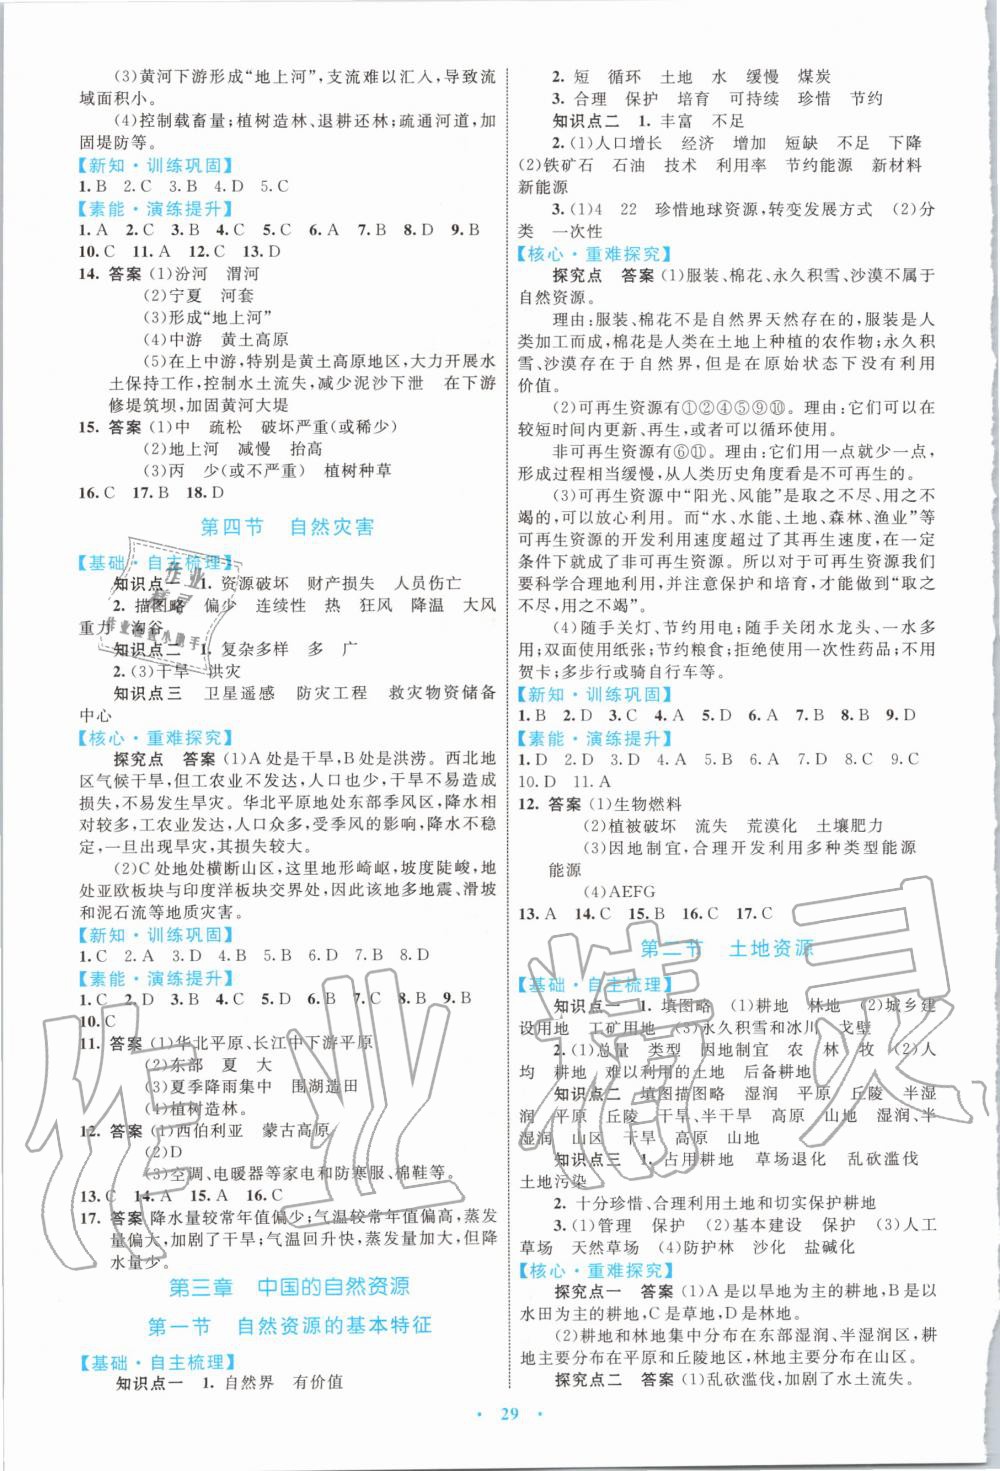 (3)黄河下游形成“地上河”,支流难以汇入,导致流
域面积小。
(4)控制载畜量;植树造林、退耕还林;疏通河道,加
固堤防等。
【新知·训练巩固】
1.B 2.C 3.B 4.D 5.C
【素能·演练提升】
1.A 2.C 3.B 4.C 5.C 6.A 7.B 8.D 9.B
10.C 11.A 12.C 13.D
14.答案 (1)汾河 渭河
(2)宁夏 河套
(3)形成“地上河”
(4)中游 黄土高原
(5)在上中游,特别是黄土高原地区,大力开展水
土保持工作,控制水土流失,减少泥沙下泄 在下游
修堤筑坝,加固黄河大堤
15.答案 (1)中 疏松 破坏严重(或稀少)
(2)地上河 减慢 抬高
(3)丙 少(或不严重) 植树种草
16.C 17.B 18.D
第四节 自然灾害
【基础·自主梳理】
知识点一 1.资源破坏 财产损失 人员伤亡
2.描图略 偏少 连续性 热 狂风 降温 大风
重力 沟谷
知识点二 1.复杂多样 多 广
2.(3)干旱 洪灾
知识点三 卫星遥感 防灾工程 救灾物资储备
中心
【核心·重难探究】
探究点 答案 (1)A处是干旱,B处是洪涝。西北地
区气候干旱,但工农业不发达,人口也少,干旱不易造成
损失,不易发生旱灾。华北平原地处东部季风区,降水
较多,工农业发达,人口众多,受季风的影响,降水不稳
定,一旦出现旱灾,其损失较大。
(2)C处地处横断山区,这里地形崎岖,坡度陡峻,地
处亚欧板块与印度洋板块交界处,因此该地多地震、滑坡
和泥石流等地质灾害。
【新知·训练巩固】
1.C 2.A 3.D 4.D 5.C 6.A 7.D 8.D
【素能·演练提升】
1.C 2.D 3.D 4.B 5.A 6.A 7.B 8.B 9.B
10.C
11.答案 (1)华北平原、长江中下游平原
(2)东部 夏 大
(3)夏季降雨集中 围湖造田
(4)植树造林。
12.答案 (1)西伯利亚 蒙古高原
(2)D
(3)空调、电暖器等家电和防寒服、棉鞋等。
13.C 14.A 15.A 16.C
17.答案 降水量较常年值偏少;气温较常年值偏高,蒸发
量偏大,加剧了干旱;气温回升快,蒸发量偏大,但降
水量少。
第三章 中国的自然资源
第一节 自然资源的基本特征
【基础·自主梳理】
知识点一 1.自然界 有价值
2.短 循环 土地 水 缓慢 煤炭
3.合理 保护 培育 可持续 珍惜 节约
知识点二 1.丰富 不足
2.(1)人口增长 经济 增加 短缺 不足 下降
(2)铁矿石 石油 技术 利用率 节约能源 新材料
新能源
3.(1)4 22 珍惜地球资源,转变发展方式 (2)分
类 一次性
【核心·重难探究】
探究点 答案 (1)服装、棉花、永久积雪、沙漠不属于
自然资源。
理由:服装、棉花不是自然界天然存在的,服装是人
类加工而成,棉花是人类在土地上种植的农作物;永久积
雪、沙漠存在于自然界,但是在原始状态下没有利用
价值。
(2)可再生资源有①②④⑤⑨⑩。理由:它们可以在
较短时间内更新、再生,或者可以循环使用。
非可再生资源有⑥⑪。理由:它们用一点就少一点,
形成过程相当缓慢,从人类历史角度看是不可再生的。
(3)可再生资源中“阳光、风能”是取之不尽、用之不
竭的,所以鼓励开发利用。而“水、水能、土地、森林、渔业”等
资源的开发利用速度超过了其再生速度,在一定
条件下就成了非可再生资源。所以对可再生资源我们
要科学合理地利用,并注意保护和培育,才能做到“取之
不尽,用之不竭”。
(4)随手关灯、节约用电;随手关闭水龙头、一水多
用;双面使用纸张;节约粮食;拒绝使用一次性药品;不用
贺卡;多步行或骑自行车等。
【新知·训练巩固】
1.B 2.D 3.C 4.A 5.D 6.D 7.B 8.B 9.D
【素能·演练提升】
1.D 2.D 3.A 4.A 5.D 6.B 7.C 8.C 9.C
10.D 11.A
12.答案 (1)生物燃料
(2)植被破坏 流失 荒漠化 土壤肥力
(3)因地制宜,合理开发利用多种类型能源
能源
(4)AEFG
13.A 14.C 15.B 16.C 17.C
第二节 土地资源
【基础·自主梳理】
知识点一 1.填图略 (1)耕地 林地 (2)城乡建
设用地 工矿用地 (3)永久积雪和冰川 戈壁
2.(1)总量 类型 因地制宜 农 林 牧 (2)人
均 耕地 难以利用的土地 后备耕地
知识点二 填图描图略 湿润 平原 丘陵 半湿
润 平原 丘陵 干旱、半干旱 高原 山地 湿润、半
湿润 山区 干旱 高原 山地
知识点三 1.占用耕地 草场退化 乱砍滥伐
土地污染
2.十分珍惜、合理利用土地和切实保护耕地
3.(1)管理 保护 (2)基本建设 保护 (3)人工
草场 天然草场 (4)防护林 沙化 盐碱化
【核心·重难探究】
探究点一 答案 (1)A是以旱地为主的耕地,B是以
水田为主的耕地,C是草地,D是林地。
(2)耕地和林地集中分布在东部湿润、半湿润地区,
耕地主要分布在平原和丘陵地区,林地主要分布在山区。
探究点二 答案 (1)乱砍滥伐,加剧了水土流失。
· 29 ·
作业精灵
作业
精灵
作业检查小助手